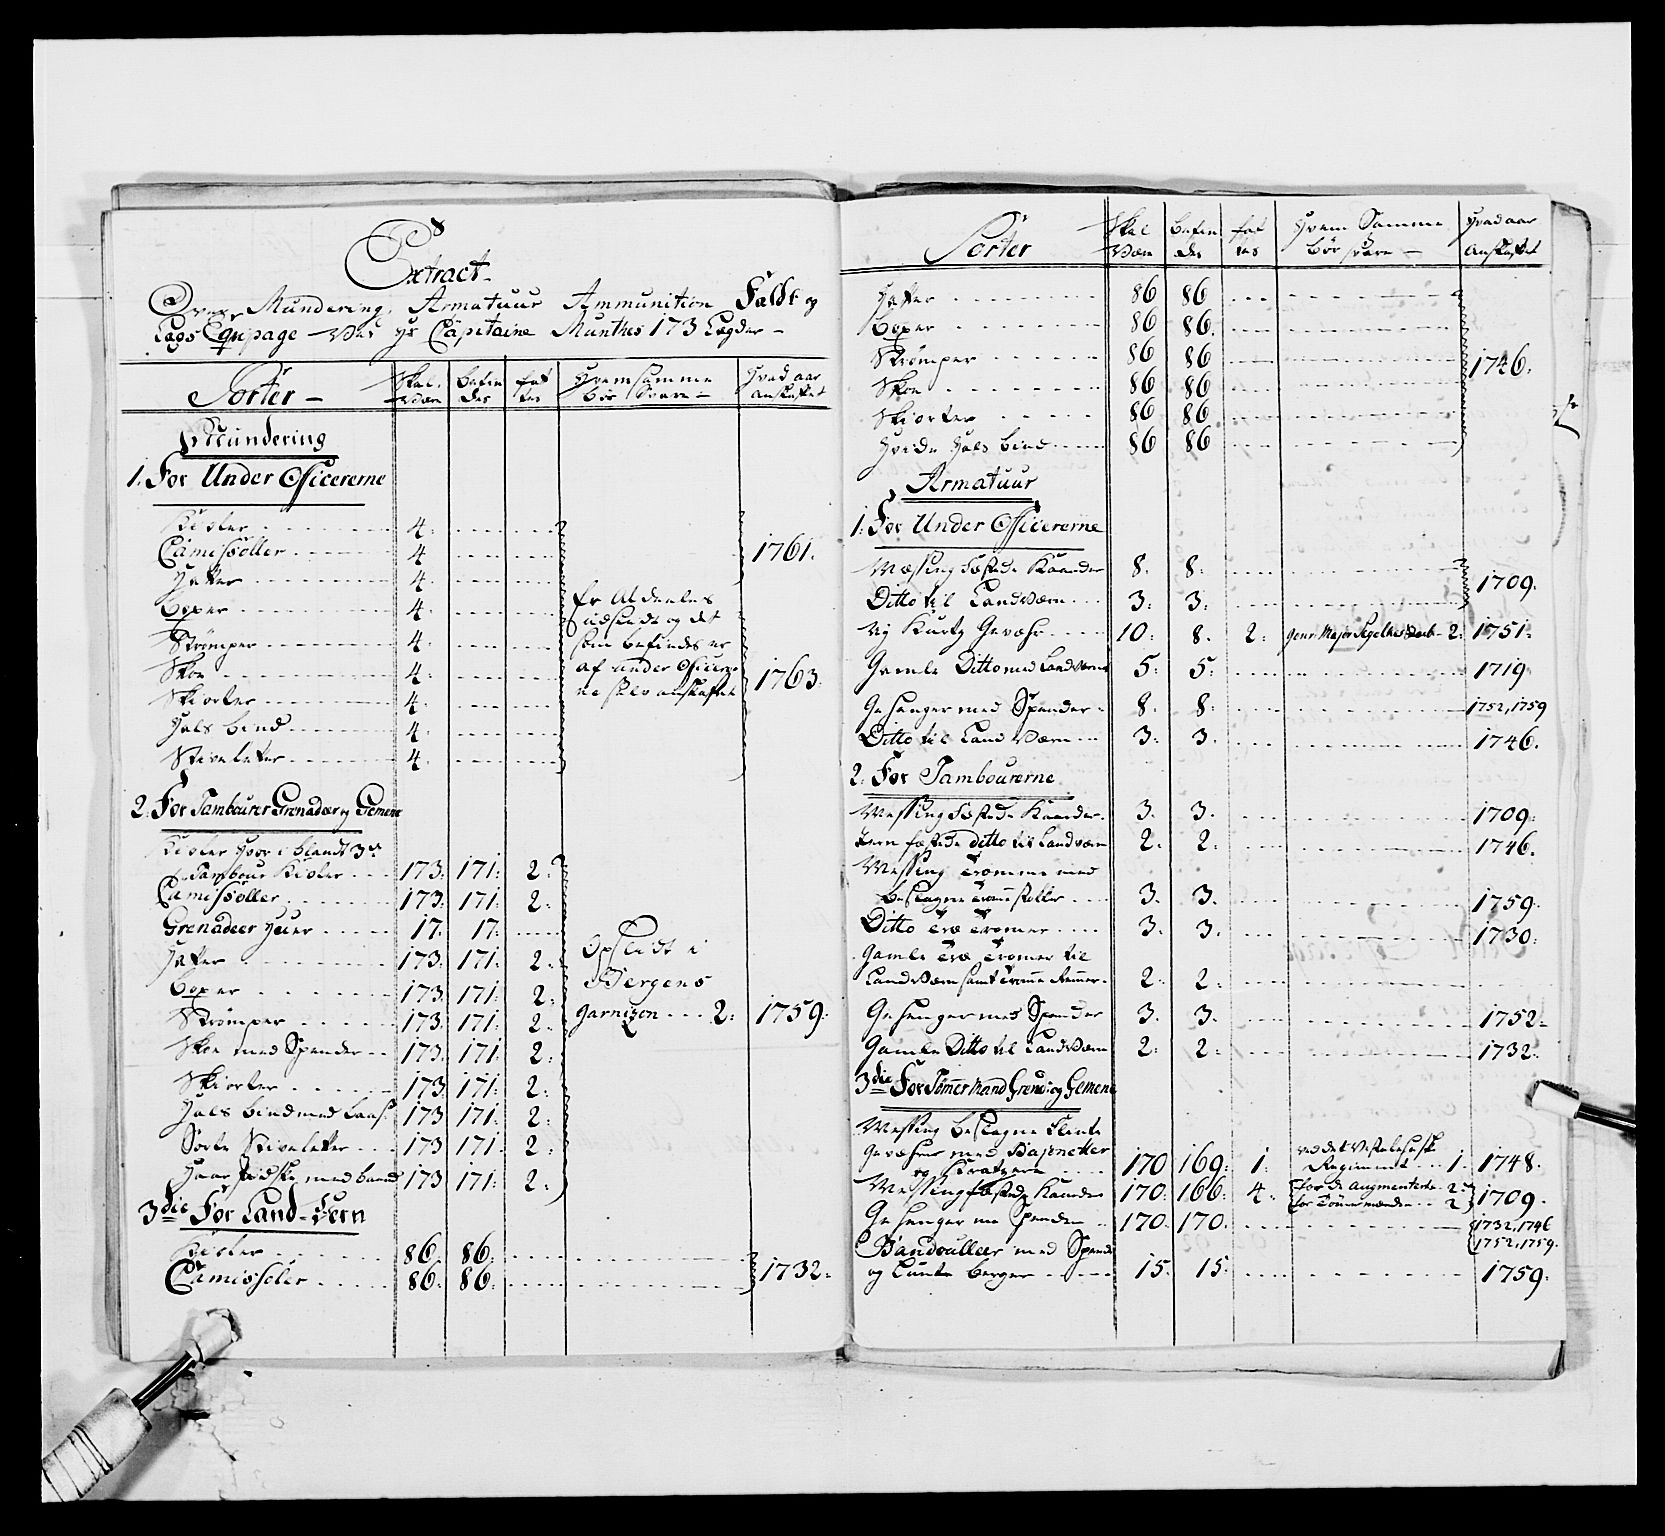 Extract
Over Mundering, Armatuur Ammunition Feldt og
Lags Equipage Ved Hr Capitaine Munthes 173 Lægder
Sorter Skal Være Befindes fattes Hvem samme bør svare Hvad aar anskaffet
Mundering
1. For Under Officererne
Kioler 4.
Camisoller 4 1761.
Hatter 4
Boxer 4. Er Aldeeles
Strømper 4. udsledt og det
som befindes er
Skoe 4. af under Officerer
ne selv anskaffet 1763.
Skiorter 4.
Hals bind 4.
Stiveletter 4.
2. For Tambourer Grenadeer og Gemene
Kioler hvor i blandt 3de
Tambour Kioler 173. 171. 2.
Camisoller 173. 171. 2.
Grenadeer Huer 17. 17.
Hatter 173. 171. 2. Opsledt i
Boxer 173. 171. 2. Bergens
Strømper 173. 171. 2. Garnizon 2. 1759.
Skoe med Spender 173. 171. 2.
Skiorter 173. 171. 2.
Hals bind med Laas 173 171. 2.
Sorte Stiveletter 173 171. 2.
Haar pidske med baand 173 171. 2.
3die For Land-Vern
Kioler 86. 86.
Camisoler 86. 86. 1732.
Sorter Skal Være Befindes fattes Hvem Samme bør svare Hvad aar Anskaffet
Hatter 86 86
Boxer 86 86.
Strømper 86 86 1746.
Skoe 86 86
Skiorter 86 86
Hvide Hals bind 86 86
Armatuur
1. For Under Officererne
Messing Fæstede Kaarder 8. 8. 1709.
Ditto til LandVærn 3. 3.
Ny Kurtz Gevæhr 10. 8. 2. Genr. Major 2. 1751.
Gamle Ditto med Landværn 5. 5. 1719
Gehenger med Spender 8. 8. 1752, 1759
Ditto til Land Værn 3. 3. 1746.
2. For Tambourerne
Messing Fæstede Kaarder 3. 3. 1709.
Jern fæstede ditto til Landværn 2. 2. 1746.
Messing Tromme med
Beslagne 3. 3. 1759.
Ditto Træ Tromer 3. 3. 1730.
Gamle Træ Tromer til
LandVærn samt Tromme Remer 2. 2.
Gehenger med Spender 3. 3. 1752.
Gamle Ditto til LandVærn 2. 2. 1732.
3die For Tømermænd Grend: og Gemene
Messing beslagne Flinte
Gevæhrer med Bajonetter ved det Vesterlehnske
og Kratzere 170 169. 1. Regiment 1. 1748.
Messing fæstede Kaarder 170. 166. 4. for de Augmenterte 2
for Tømmermænden 2 1709.
Gehenger med Spender 170. 170. 1732, 1746
1752, 1759.
Bandoulleer med Spende
og Lunte berger 15. 15. 1759.